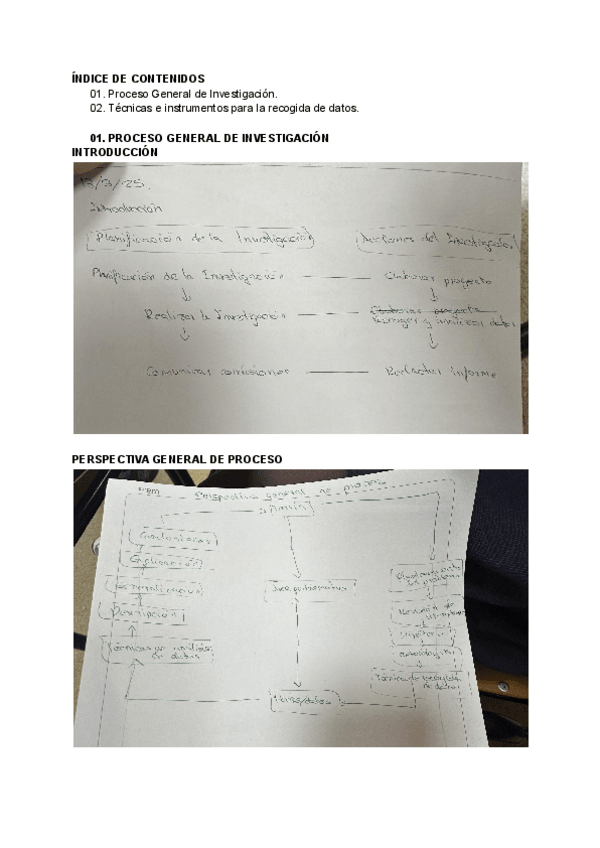 ÍNDICE DE CONTENIDOS
01. Proceso General de Investigación.
02. Técnicas e instrumentos para la recogida de datos.
01. PROCESO GENERAL DE INVESTIGACIÓN
INTRODUCCIÓN
13/3/25.
Introducción
Planificación de la Investigación
Acciones del Investigador
Planificación de la Investigación
Elaborar proyecto
Realizar la Investigación
Elaborar proyecto
Recoger y analizar datos
Comunicar conclusiones
Redactar Informe
PERSPECTIVA GENERAL DE PROCESO
Perspectiva general de proceso
Conclusiones
Explicación
Descripción
Técnicas de análisis
de datos
Planteamiento
Revisión de
Técnica de recogida
de datos